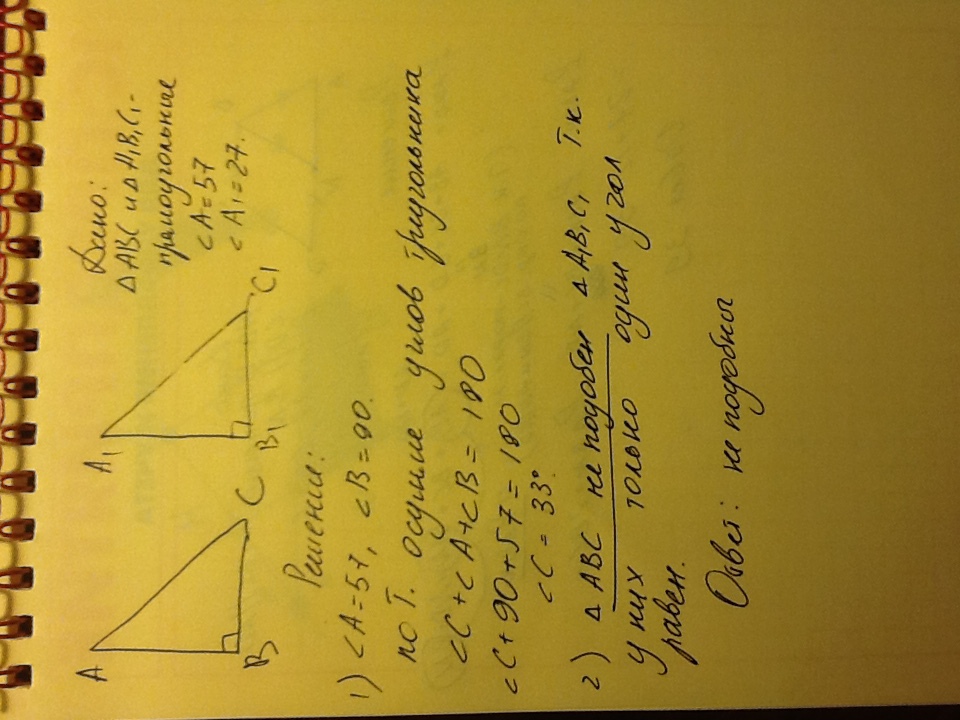 Дано:
Δ ABC и Δ A₁B₁C₁-
прямоугольные
<A=57
<A₁=27.
A
B
C
A₁
B₁
C₁
Решение:
1) <A=57, <B=90.
по Т. осумме углов треугольника
<C+<A+<B=180
<C+90+57=180
<C=33°.
2) Δ ABC не подобен Δ A₁B₁C₁ Т.к.
у них только один угол
равен.
Ответ: не подобны